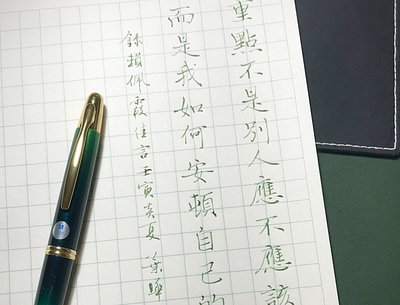 重點不是別人應不應該
而是我如何安頓自己的
錄賴佩霞佳言壬寅炎夏 葉曄